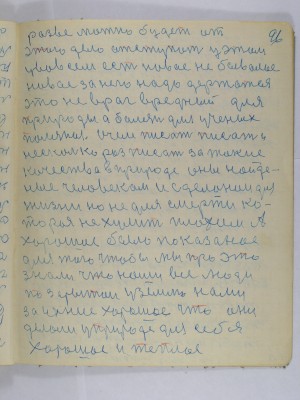 96
разве можно будет от
этого дело отступит у этом
у всем ест новое не бывалое
новое за него надо держатся
это не враг вредный для
природы а болен для ученых
писат писать
несколко раз писат за такие
качества в природе они найде-
ные человеком и сделаны для
жизни но не для смерти ко-
торая не хулит плохем а
хорошое было показаное
для того чтобы мы про это
знали что наши все люди
по з крытом у землю нами
за ихние хорошое что они
делали у природе для себя
хорошое и теплое